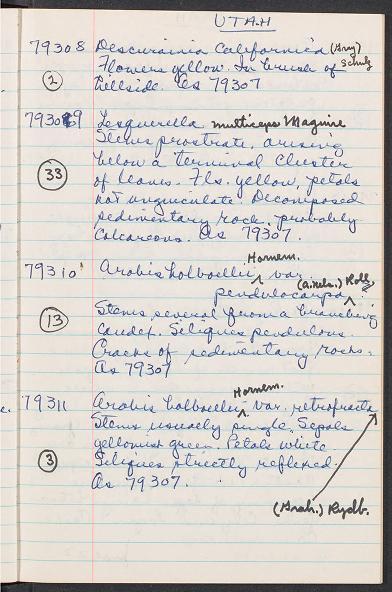 UTAH
79308 Descurainia Californica (Gray) Schulz
Flowers yellow. In brush of
② hillside. As 79307
79309 Lesquerella multiceps Maguire
Stems prostrate, arising
below a terminal cluster
㉝ of leaves. Fls. yellow, petals
not unguiculate. Decomposed
sedimentary rock, probably
calcareous. As 79307.
79310 Arabis holboellii Hornem. var.
pendulocarpa (A. Nels.) Roll.
⑬ Stems several from a branching
caudex. Siliques pendulous.
Cracks of sedimentary rocks.
As 79307
79311 Arabis holboellii Hornem. var. retrofracta
Stems usually single. Sepals
yellowish green. Petals white
③ Siliques strictly reflexed.
As 79307.
(Grah.) Rydb.